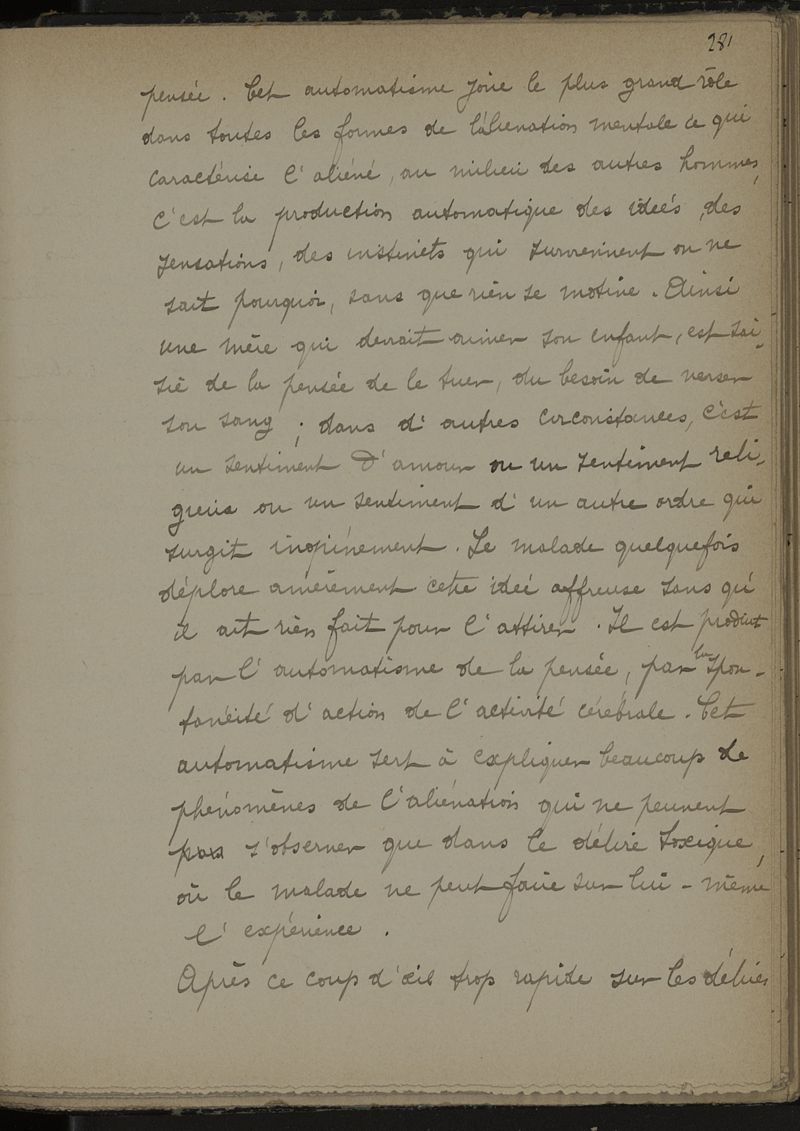 281
pensée. Cet automatisme joue le plus grand rôle
dans toutes les formes de l'aliénation mentale ce qui
caractérise l'aliéné, au milieu des autres hommes,
c'est la production automatique des ideés, des
sensations, des instincts qui surviennent on ne
sait pourquoi, sans que rien se motive. Ainsi
une mère qui devrait aimer son enfant, est sai-
sie de la pensée de le tuer, du besoin de verser
son sang ; dans d'autres circonstances, c'est
un sentiment d'amour ou un sentiment reli-
gieux ou un sentiment d'un autre ordre qui
surgit inopinément. Le malade quelquefois
déplore amèrement cette ideé affreuse sans qu'
il ait rien fait pour l'attirer. Il est produit
par l'automatisme de la pensée, par la spon-
tanéité d'action de l'activité cérébrale. Cet
automatisme sert à expliquer beaucoup de
phénomènes de l'aliénation qui ne peuvent
pas s'observer que dans le délire toxique,
où le malade ne peut faire sur lui-même
l'expérience.
Après ce coup d'œil trop rapide sur les délires